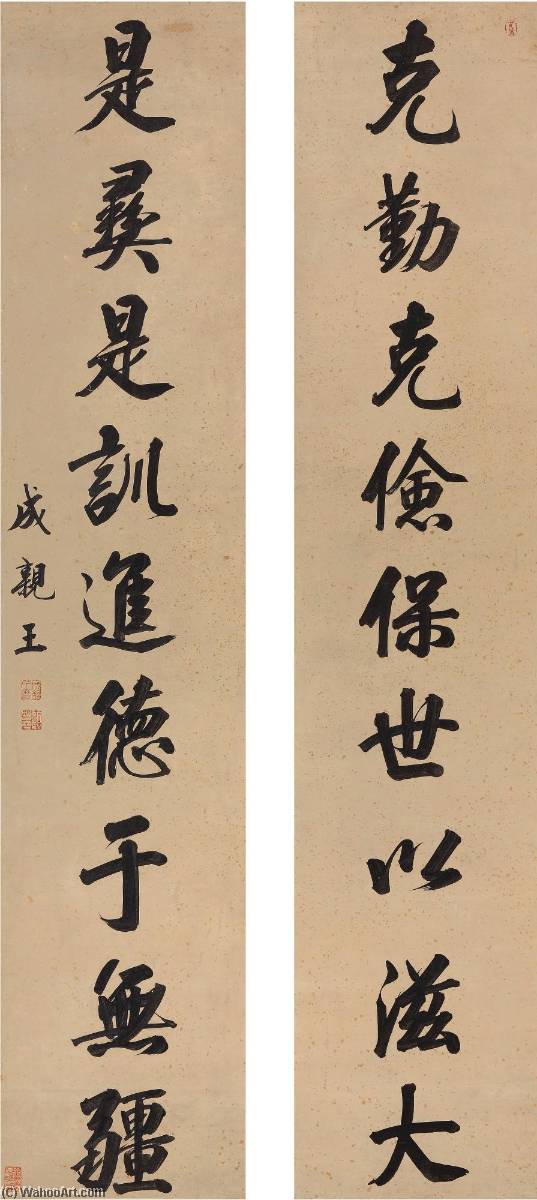 克勤克儉保世以滋大
是彝是訓進德于無疆
成親王
(C) WahooArt.com